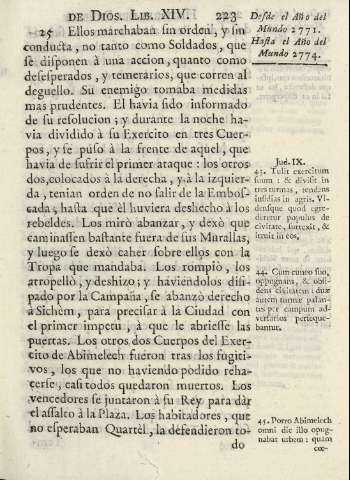 DE DIOS. LIB. XIV. 223
Desde el Año del
Mundo 2771.
Hasta el Año del
Mundo 2774.
25 Ellos marchaban sin orden, y sin
conducta, no tanto como Soldados, que
se disponen à una accion, quanto como
desesperados, y temerarios, que corren al
deguello. Su enemigo tomaba medidas
mas prudentes. El havia sido informado
de su resolucion; y durante la noche ha-
via dividido à su Exercito en tres Cuer-
pos, y se púso à la frente de aquel, que
havia de sufrir el primer ataque: los otros
dos, colocados à la derecha, y à la izquier-
da, tenian orden de no salir de la Embos-
cada, hasta que èl huviera deshecho à los
rebeldes. Los mirò abanzar, y dexò que
caminassen bastante fuera de sus Murallas,
y luego se dexò caher sobre ellos con la
Tropa que mandaba. Los rompiò, los
atropellò, y deshizo; y haviendolos disi-
pado por la Campaña, se abanzò derecho
à Sichèm, para precisar à la Ciudad con
el primer impetu, à que le abriesse las
puertas. Los otros dos Cuerpos del Exer-
cito de Abimelech fueron tras los fugiti-
vos, los que no haviendo podido reha-
cerse, casi todos quedaron muertos. Los
vencedores se juntaron à su Rey para dàr
el assalto à la Plaza. Los habitadores, que
no esperaban Quartèl, la defendieron to-
do
Jud. IX.
43. Tulit exercitum
suum: & divisit in
tres turmas, tendens
insidias in agris. Vi-
densque quod egre-
deretur populus de
civitate, surrexit, &
irruit in eos,
44. Cum cuneo suo,
oppugnans, & obsi-
dens civitatem: duæ
autem turmæ palan-
tes per campum ad-
versarios perseque-
bantur.
45. Porro Abimelech
omni die illo opug-
nabat urbem: quam
cœ-